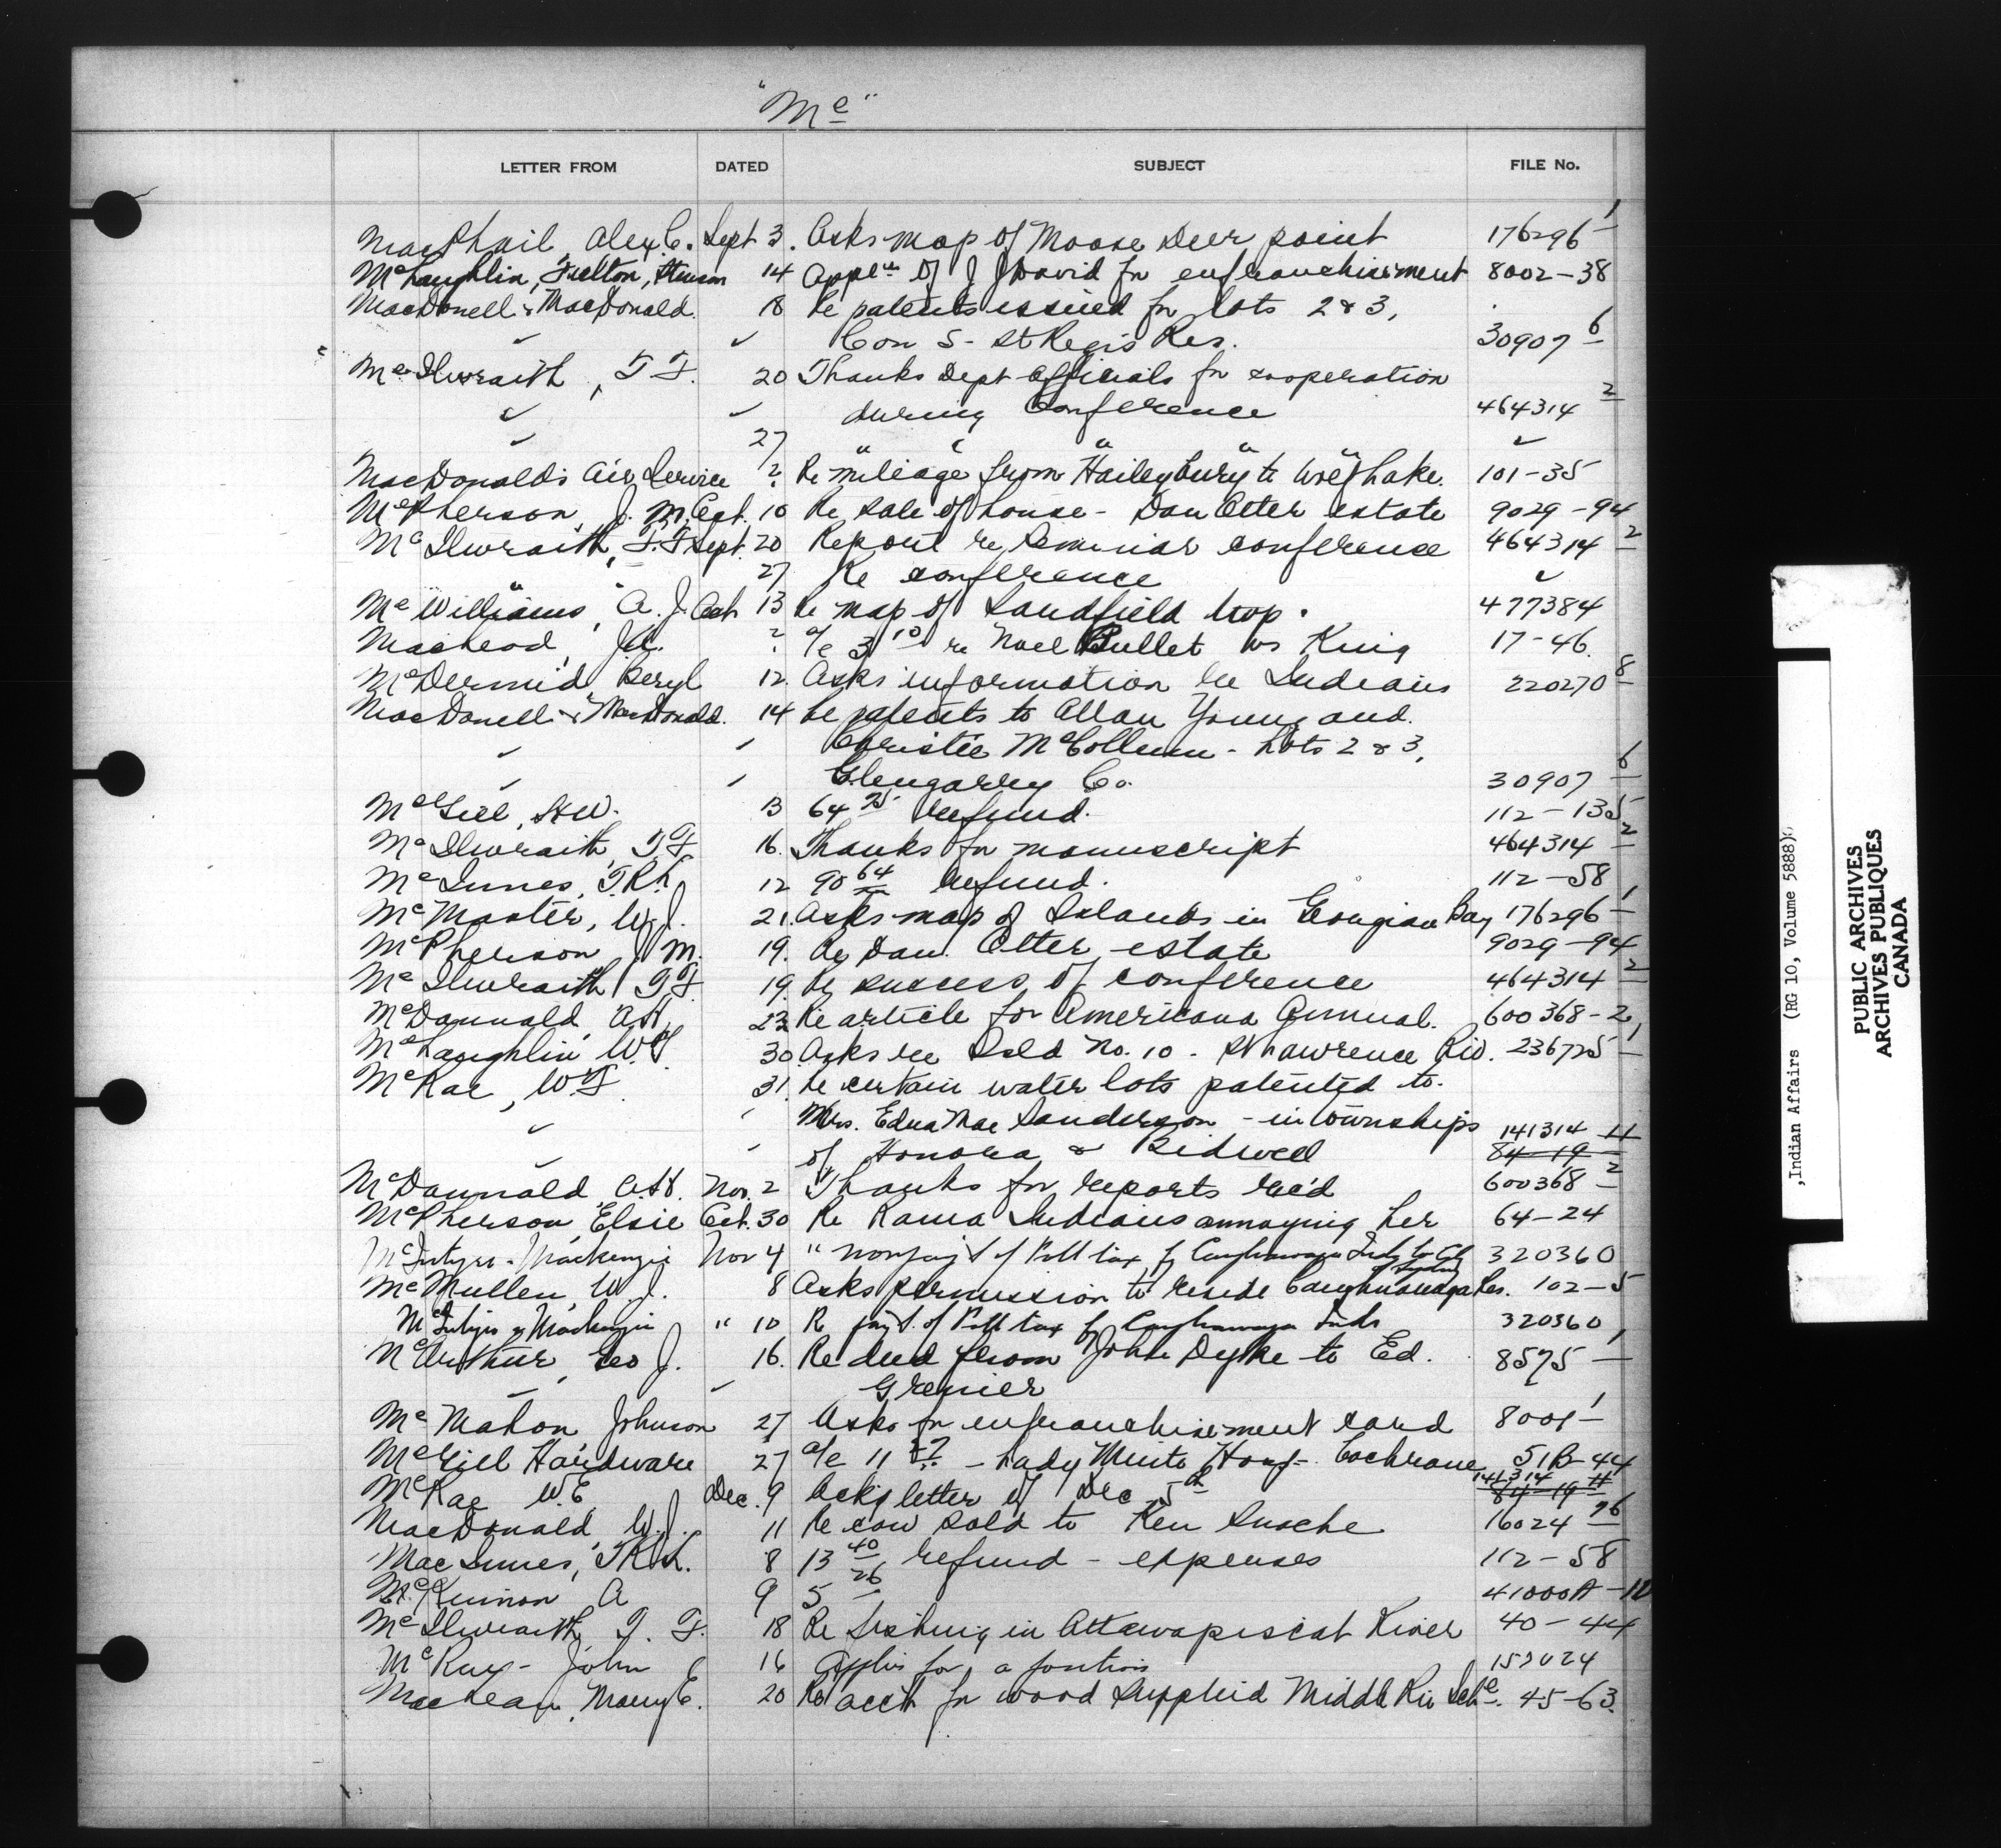 "Mc"
LETTER FROM DATED SUBJECT FILE No.
MacPhail, Alex C. Sept 3. Asks map of Moose Deer point 176296 1
McLaughlin, Fulton, Stinson 14 Appln of J J David for enfranchisement 8002-38
MacDonell & MacDonald. 18 Re patents issued for lots 2 & 3,
✓ ✓ Con 5 - St Regis Res. 30907 6
McIlwraith, T F. 20 Thanks Dept Officials for cooperation
✓ ✓ during Conference 464314 2
✓ 27 " " " " ✓
MacDonald's Air Service ? Re mileage from Haileybury to Lake. 101-35
McPherson, J. M. Oct. 10 Re sale of house - Dan Otter estate 9029-94
McIlwraith, T. F. Sept. 20 Report re Seminar conference 464314 2
" " 27 Re conference ✓
McWilliams, A. J. Oct 13 Re map of Landfield twp. 477384
MacLeod, J.A. ? a/c 3 10 re Noel Bullet vs King 17-46.
McDermid Beryl 12. Asks information re Indians 220270 8
MacDonell & MacDonald. 14 Re patents to Allan Young and.
✓ ✓ Christie McCollum - Lots 2 & 3,
✓ ✓ Glengarry Co. 30907 6
McGill, H.W. 13 64 75 refund. 112-135
McIlwraith, T F 16. Thanks for manuscript 464314 2
McInnes, T.R.L. 12 90 64 refund. 112-58
McMaster, W.J. 21. Asks map of Islands in Georgian Bay 176296 1
McPherson J M. 19. Re Dan Otter estate 9029-94
McIlwraith T F 19. Re success of conference 464314 2
McDannald, A.H. 23 Re article for Americana Annual. 600368-2
McLaughlin W.F. 30. Asks re Isld No. 10. St Lawrence Riv. 236725 1
McRae, W.F. 31. Re certain water lots patented to.
✓ ✓ Mrs. Edna Mae Sanderson - in townships 141314 H
✓ ✓ of Honora & Bidwell 84-19
McDannald A.H. Nov. 2 Thanks for reports rec'd 600368 2
McPherson, Elsie Oct. 30 Re Rama Indians annoying her 64-24
McIntyre & Mackenzie Nov 4 " nonpay't of Poll tax by Caughnawaga Inds to City 320360
McMullen, W. J. 8 Asks permission to reside Caughnawaga Res. 102-5
McIntyre & Mackenzie " 10 Re pay't. of Poll tax by Caughnawaga Inds 320360
McArthur, Geo J. 16. Re deed from John Dyke to Ed. 8575 1
✓ ✓ Grenier ✓
McMahon Johnson 27 Asks for enfranchisement card 8001 1
McGill Hardware 27 a/c 11 - Lady Minto Hosp - Cochrane 51B-44
McRae W.E Dec. 9 Ackg letter of Dec 5th 141314 H 84-19
MacDonald, W.J. 11 Re cow sold to Ken Susche 16024 76
MacInnes, T.R.L. 8 13 40 refund - expenses 112-58
McKinnon A 9 5 26 41000A-12
McIlwraith, T. F. 18 Re fishing in Attawapiscat River 40-44
McKay - John 16 Applies for a position 152024
MacLean, Mary E. 20 Re acc't for wood supplied Middle Riv Sch. 45-63.
,Indian Affairs (RG 10, Volume 5888)
PUBLIC ARCHIVES
ARCHIVES PUBLIQUES
CANADA